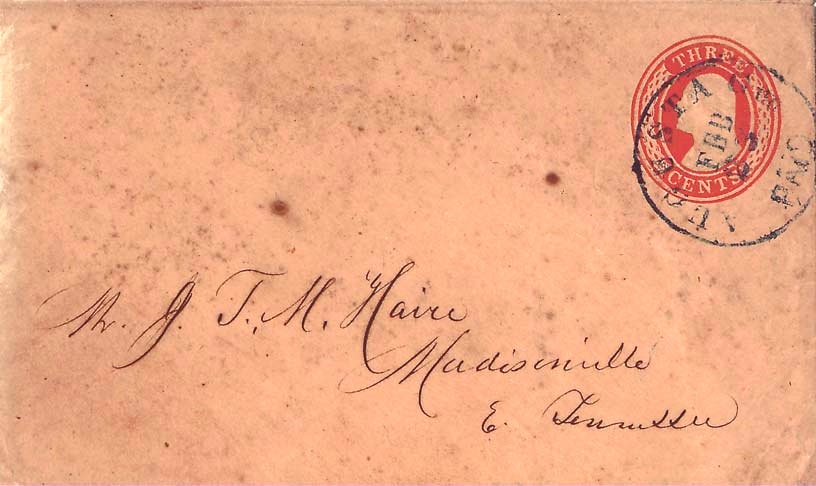 THREE
CENTS
AUGUSTA Ga
FEB
PAID
Mr. J. T. M. Haire
Madisonville
E. Tennessee